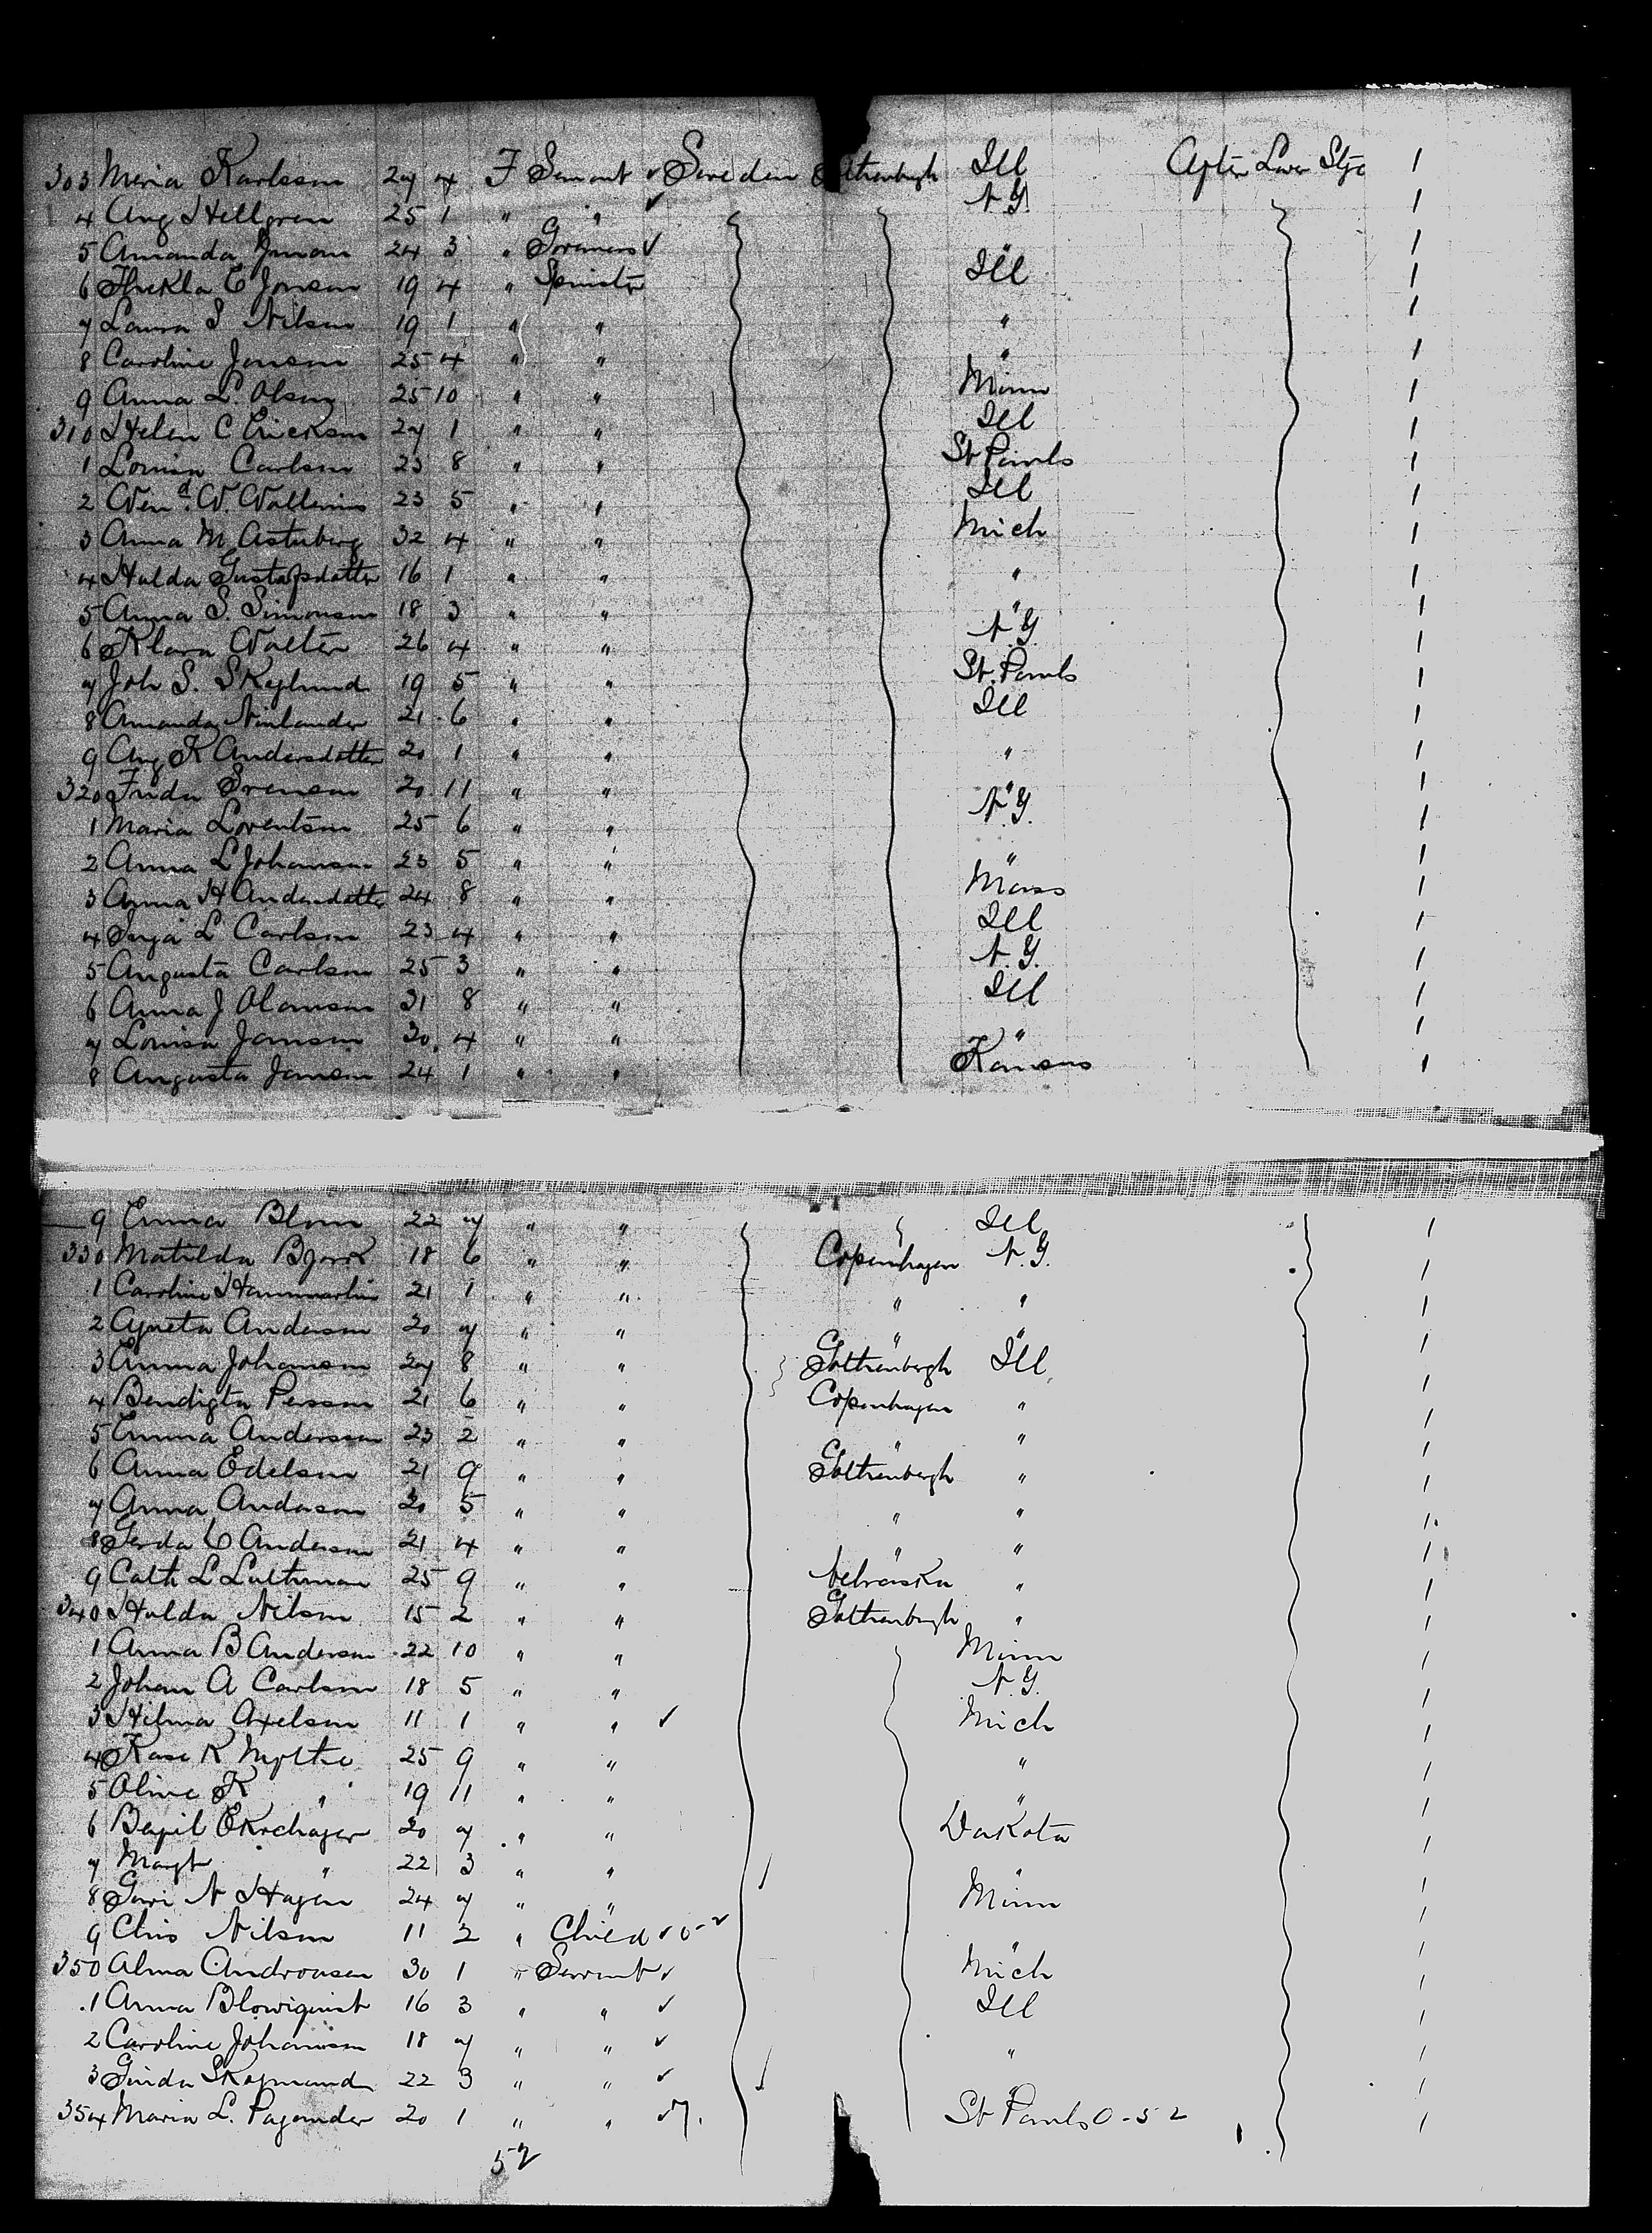 303 Maria Karlsson 27 4 F Servant ✓ Sweden Gothenburgh Ill After Lower Stge 1
4 Aug Hellgren 25 1 " " ✓ N.Y. 1
5 Amanda 24 3 " ✓ " 1
6 Thekla C Jonson 19 4 " Spinster Ill 1
7 Laura S Nilson 19 1 " " " 1
8 Caroline Jonson 25 4 " " " 1
9 Anna L. Olson 25 10 " " Minn 1
310 Helen C Erickson 27 1 " " Ill 1
1 Lovisa Carlson 23 8 " " St Pauls 1
2 W. Wallenius 23 5 " " Ill 1
3 Anna M 32 4 " " Mich 1
4 Hulda Gustafsdatter 16 1 " " " 1
5 Anna S. Simonson 18 3 " " " 1
6 Klara Walter 26 4 " " N.Y. 1
7 Joh S. Skylund 19 5 " " St. Pauls 1
8 Amanda 21 6 " " Ill 1
9 Aug K Andersdatter 20 1 " " " 1
320 Frida Svenson 20 11 " " " 1
1 Maria Lorentson 25 6 " " N.Y. 1
2 Anna L Johanson 23 5 " " " 1
3 Anna H Andersdatter 24 8 " " Mass 1
4 L Carlson 23 4 " " Ill 1
5 Augusta Carlson 25 3 " " N.Y. 1
6 Anna J 31 8 " " Ill 1
7 Lovisa Jonson 30 4 " " " 1
8 Augusta Jonson 24 1 " " Kansas 1
9 Emma Blom 22 7 " " " Ill 1
330 Matilda Bjork 18 6 " " Copenhagen N.Y. 1
1 Caroline Hammarlin 21 1 " " " " 1
2 Agneta Anderson 20 7 " " " " 1
3 Emma Johanson 27 8 " " Gothenburgh Ill 1
4 Bendigta Persson 21 6 " " Copenhagen " 1
5 Emma Andersson 23 2 " " " " 1
6 Anna Edelson 21 9 " " Gothenburgh " 1
7 Anna Anderson 20 5 " " " " 1
8 Gerda C Anderson 21 4 " " " " 1
9 Cath L Luthman 25 9 " " Nebraska " 1
340 Hulda Nilson 15 2 " " Gothenburgh " 1
1 Anna B Anderson 22 10 " " Minn 1
2 Johan A Carlson 18 5 " " N.Y. 1
3 Hilma Axelson 11 1 " " ✓ Mich 1
4 K 25 9 " " " 1
5 Oline K " 19 11 " " " 1
6 20 7 " " Dakota 1
7 Margt " 22 3 " " " 1
8 N Hagen 24 7 " " Minn 1
9 Chris Nilson 11 2 " Child ✓ " 1
350 Alma 30 1 " Servant ✓ Mich 1
1 Anna 16 3 " " ✓ Ill 1
2 Caroline Johanson 18 7 " " ✓ " 1
3 22 3 " " ✓ " 1
354 Maria L. 20 1 " " St Pauls 0-52 1
52